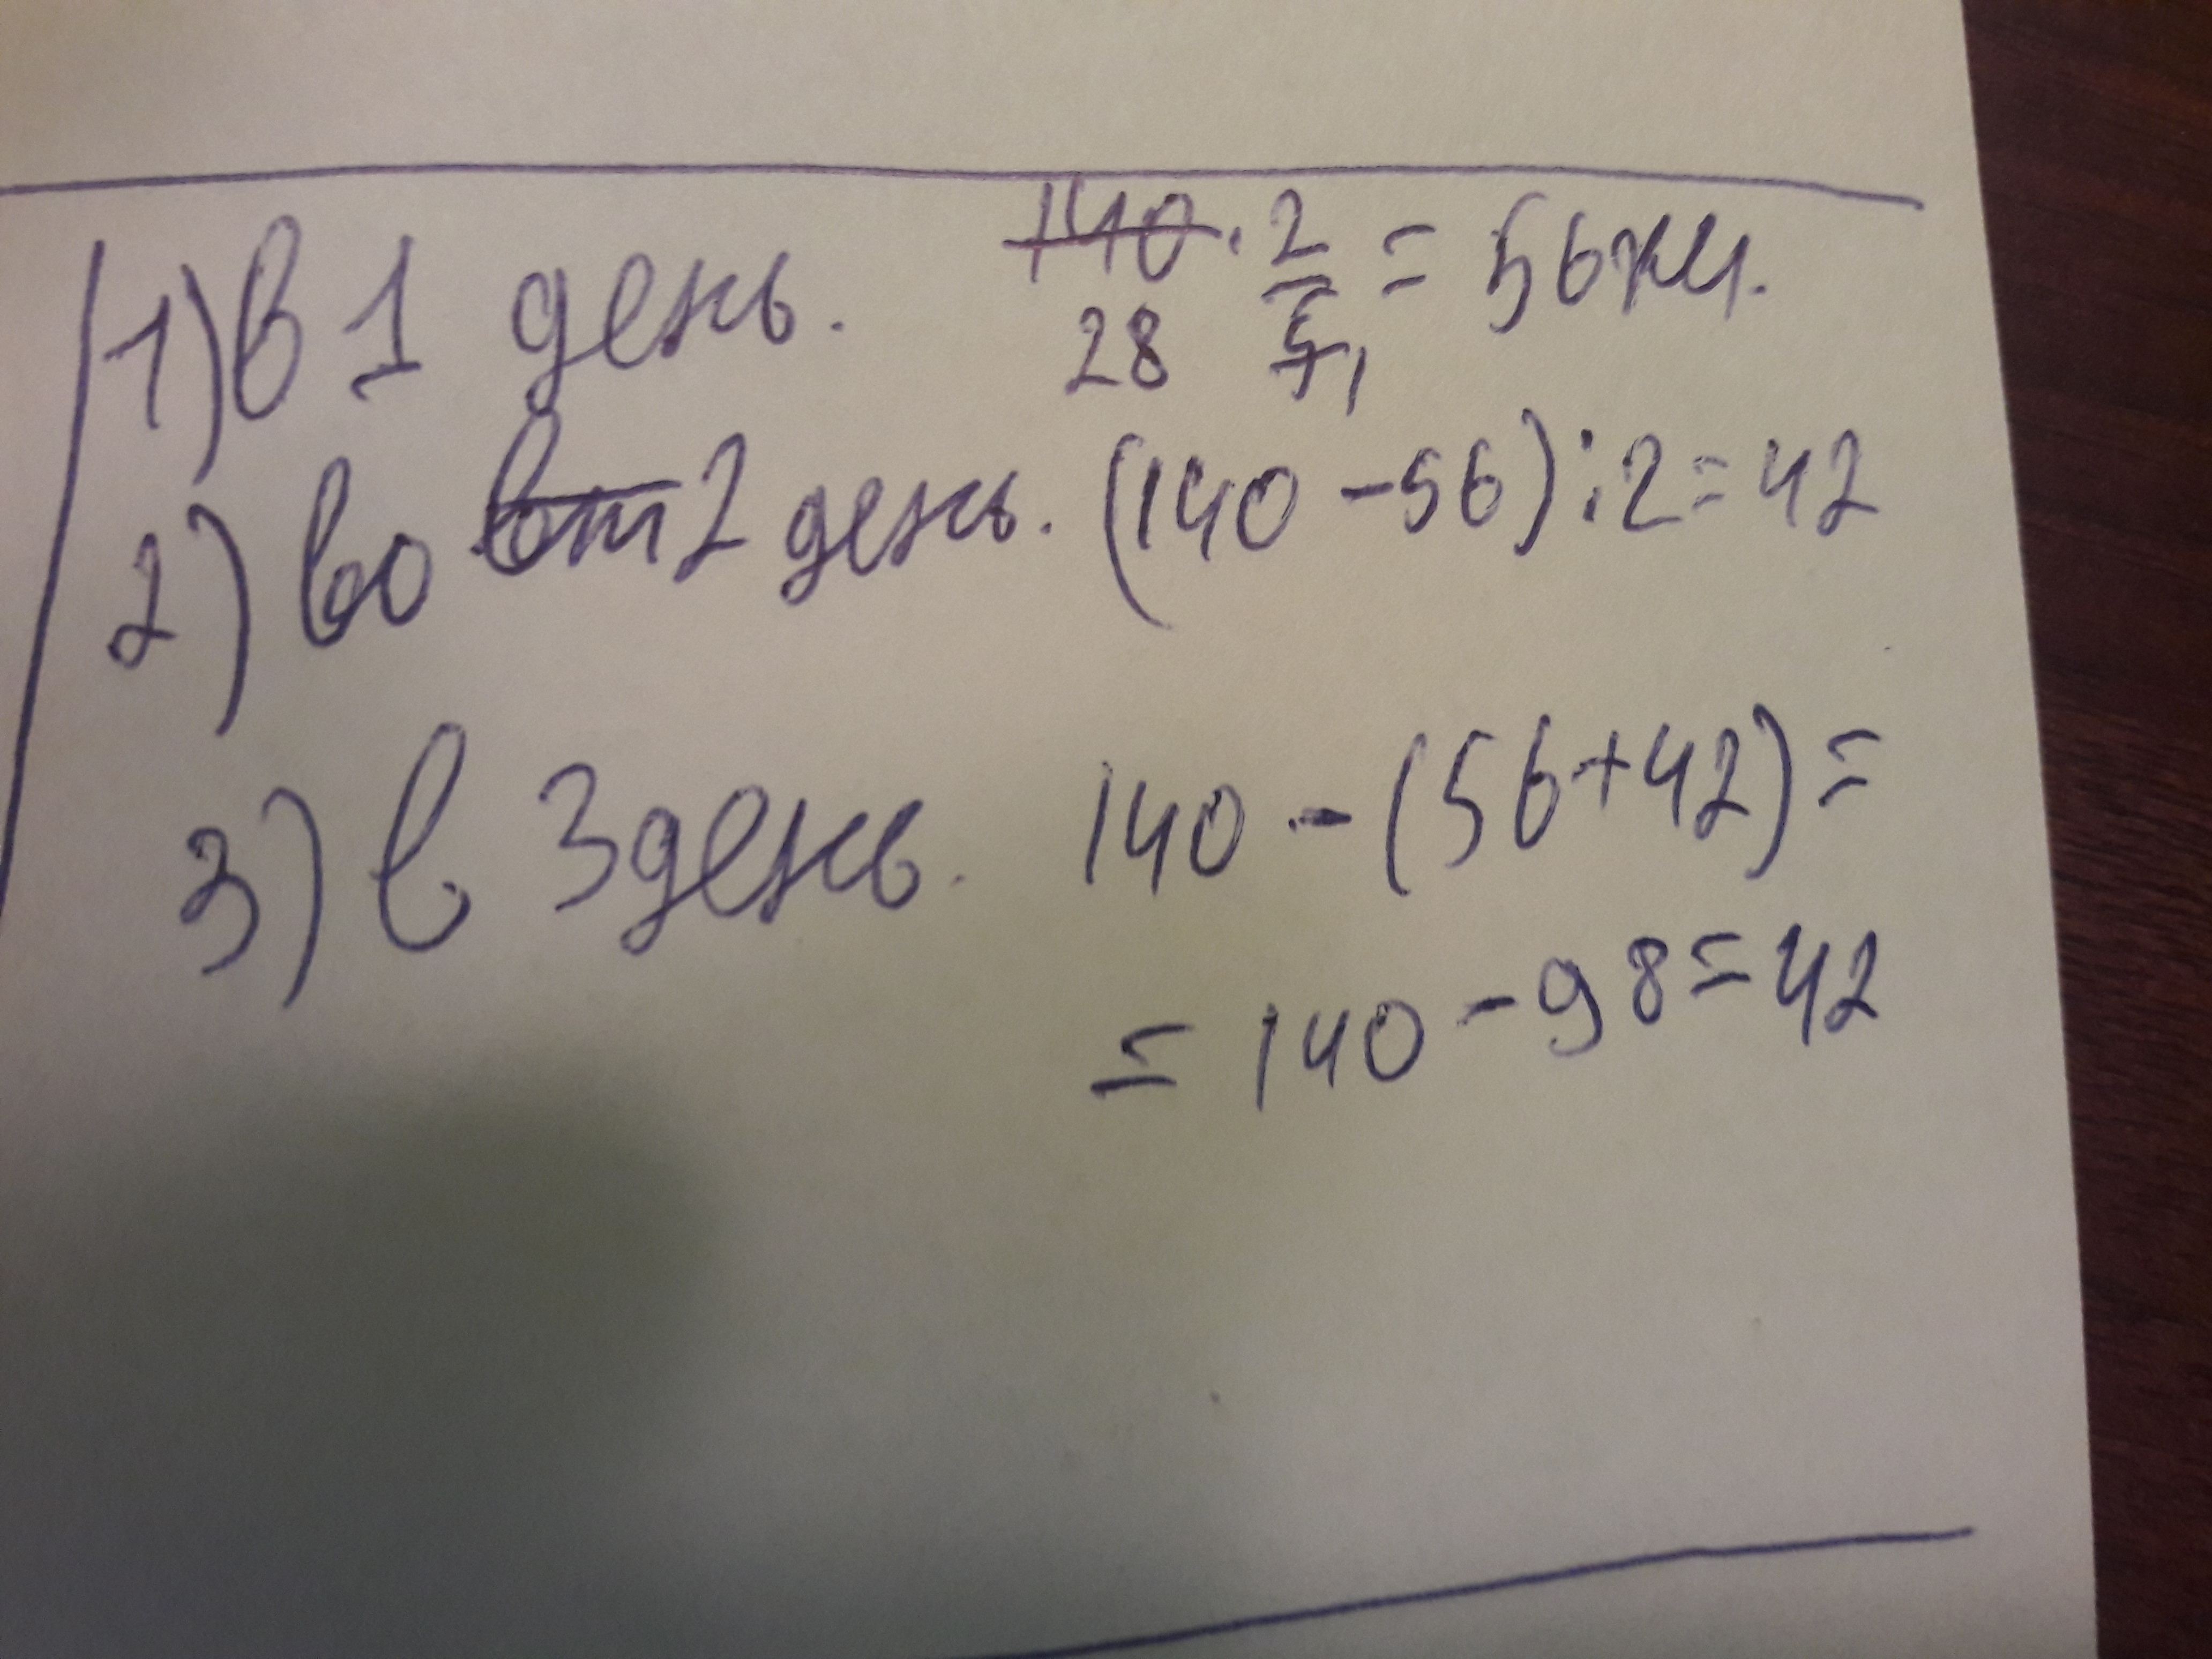 1) В 1 день. 140 · 2/5 = 56 км.
28 1
2) Во вт 2 день. (140 - 56) : 2 = 42
3) В 3 день. 140 - (56 + 42) =
= 140 - 98 = 42